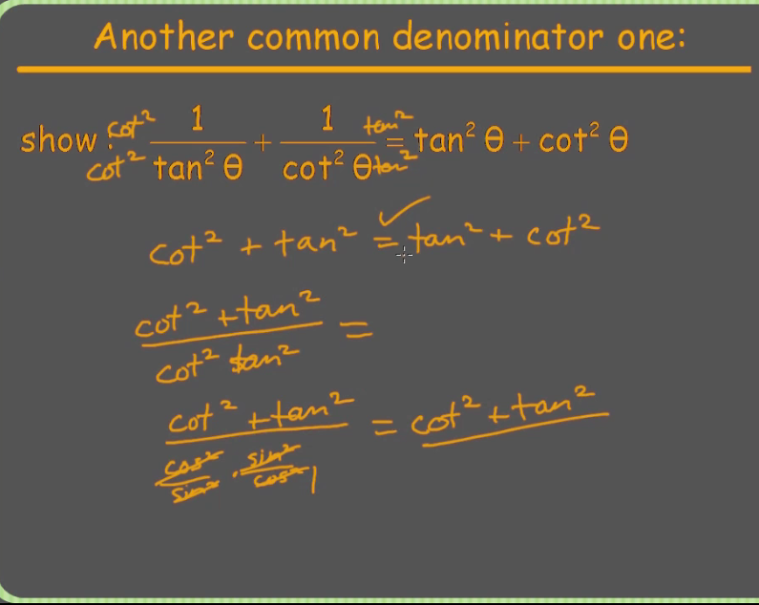 Another common denominator one:
show: cot² 1 / cot² tan² θ + 1 tan² / cot² θ tan² = tan² θ + cot² θ
cot² + tan² = tan² + cot² ✓
cot² + tan² / cot² tan² =
cot² + tan² / cos²/sin² · sin²/cos² 1 = cot² + tan²